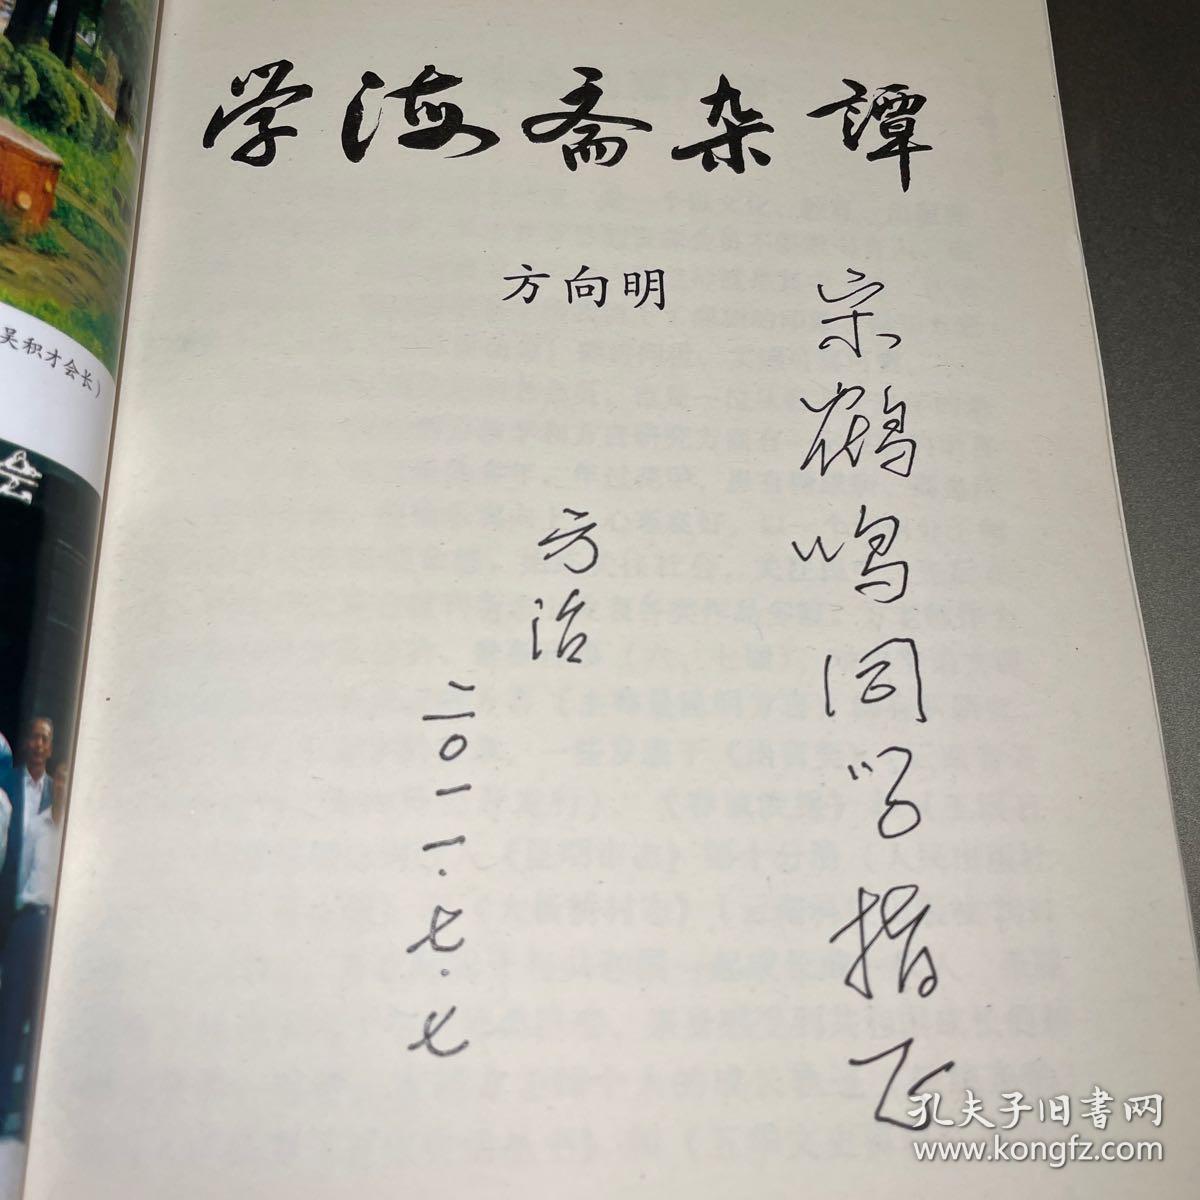 学海斋杂谭
方向明
宗鹤鸣同学指正
方治
二〇一一.七.七
吴积才会长）
会
孔夫子旧书网
www.kongfz.com